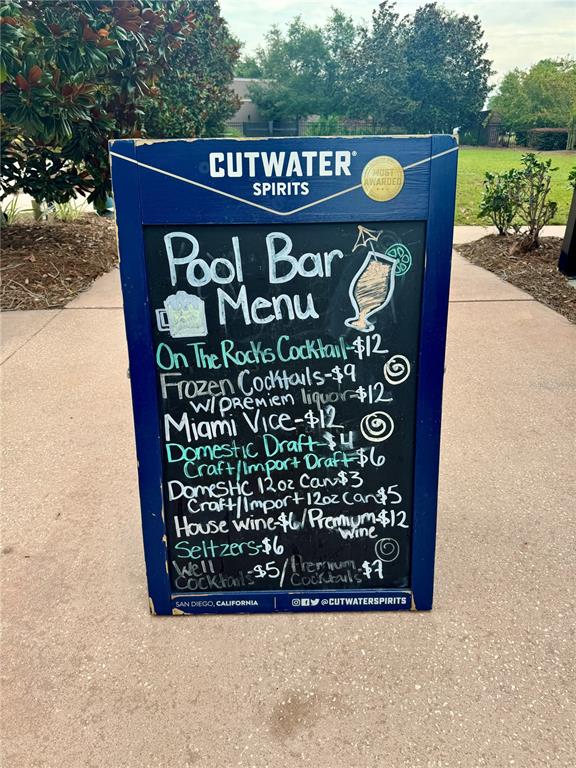 CUTWATER®
SPIRITS
MOST
AWARDED
Pool Bar
Menu
On The Rocks Cocktail-$12
Frozen Cocktails-$9
w/premiem liquor-$12
Miami Vice-$12
Domestic Draft-$4
Craft/Import Draft-$6
Domestic 12oz Can-$3
Craft/Import 12oz Can-$5
House wine-$6/Premium-$12
wine
Seltzers-$6
Well
Cocktails-$5/Premium
Cocktails-$7
SAN DIEGO, CALIFORNIA
@CUTWATERSPIRITS